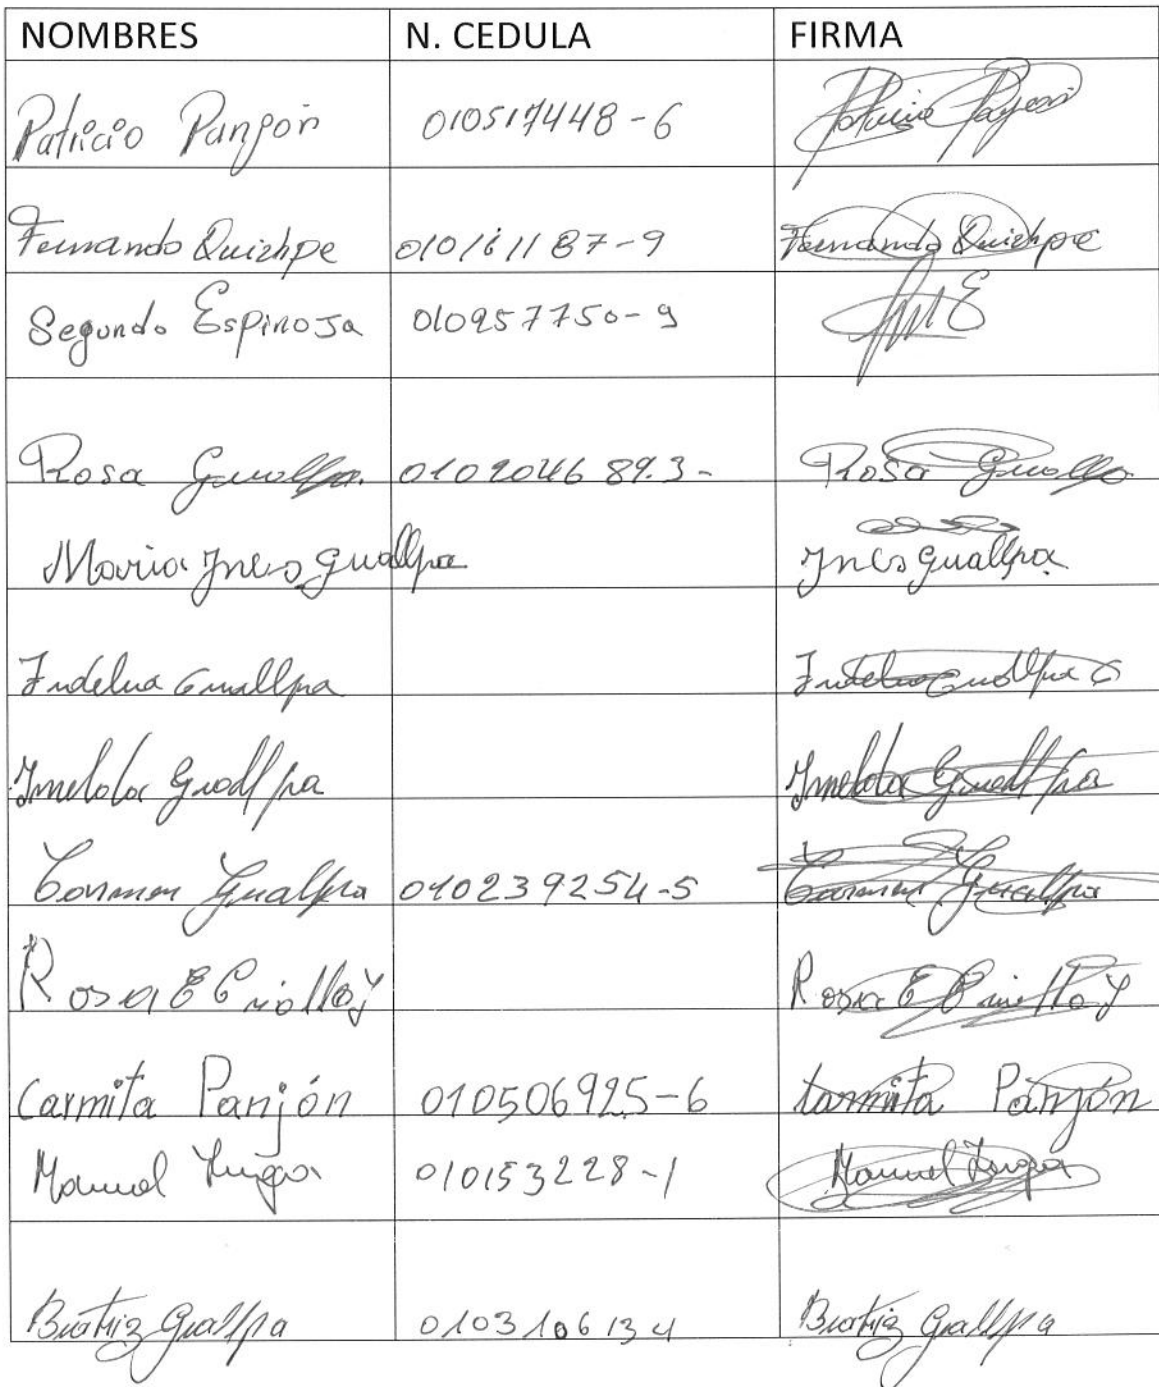 NOMBRES N. CEDULA FIRMA
Patricio Panjón 010517448-6 Patricio Panjón
Fernando Quizhpe 010161187-9 Fernando Quizhpe
Segundo Espinosa 010957750-9
Rosa Guallpa. 010204689.3- Rosa Guallpa
Maria Ines guallpa Ines guallpa
Indelua Guallpa Guallpa
Imelda Guallpa Imelda Guallpa
Carmen Guallpa 010239254-5 Carmen Guallpa
Rosa E Criollo Y Rosa E Criollo Y
Carmita Panjón 010506925-6 Carmita Panjón
Manuel Zuniga 010153228-1 Manuel
Beatriz Guallpa 0103106134 Beatriz Guallpa